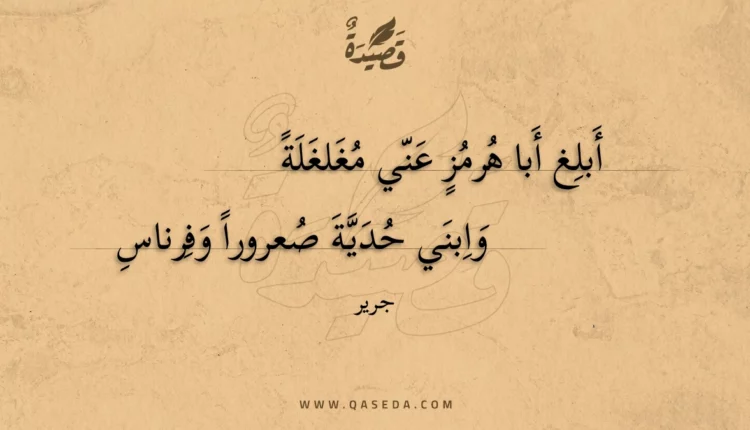 قَصِيْدَةٌ
أَبلِغ أَبا هُرمُزٍ عَنّي مُغَلغَلَةً
وَاِبنَي حُدَيَّةَ صُعروراً وَفِرناسِ
جرير
WWW.QASEDA.COM